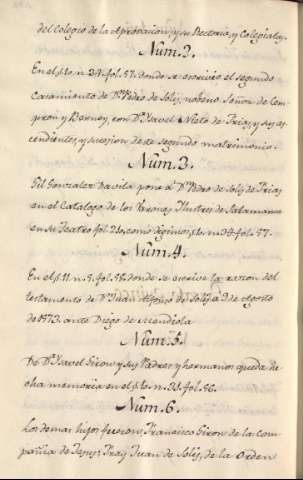 del Colegio de la Aprobacion, y su Rectoria, y Colegiales.
Num. 2.
En el §. 10. n. 34. fol. 57. donde se escrivio el segundo
Casamiento de Dn. Pedro de Solis, noveno Señor de Cem-
pron y Darnos, con Da. Ysavel Nieto de Frias, y sus as-
cendientes, y sucesion deste segundo matrimonio.
Num. 3.
Gil Gonzalez Davila pone a Dn. Pedro de Solis, y Frias
en el Catalogo de los Varones Ilustres de Salamanca
en su Teatro fol. como digimos §. 10. n. 34. fol. 57.
Num. 4.
En el §. 11. n. 5. fol. 58. donde se escrive la razon del
testamento de Dn. Juan Alfonso de Solis, a 9. de Agosto
de 1573. ante Diego de Mendiola
Num. 5.
De Da. Ysavel Giron y sus Padres, y hermanos queda de
oha memoria en el §. 10. n. 31. fol. 56.
Num. 6.
Los demas hijos fueron, Francisco Giron de la Com-
pañia de Jesus; Fray Juan de Solis, de la Orden